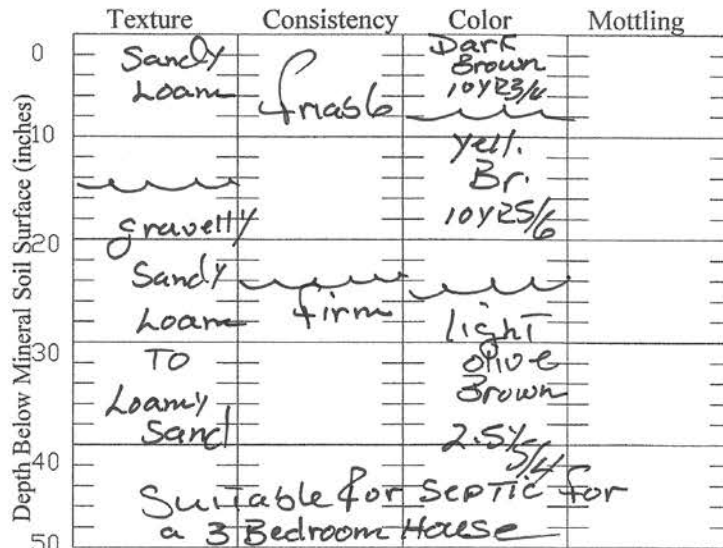 Texture Consistency Color Mottling
Depth Below Mineral Soil Surface (inches)
0
10
20
30
40
50
Sandy
Loam
gravelly
Sandy
Loam
To
Loamy
Sand
friable
firm
Dark
Brown
10YR3/4
Yell.
Br.
10YR5/6
light
olive
Brown
2.5Y
5/4
Suitable for Septic for
a 3 Bedroom House